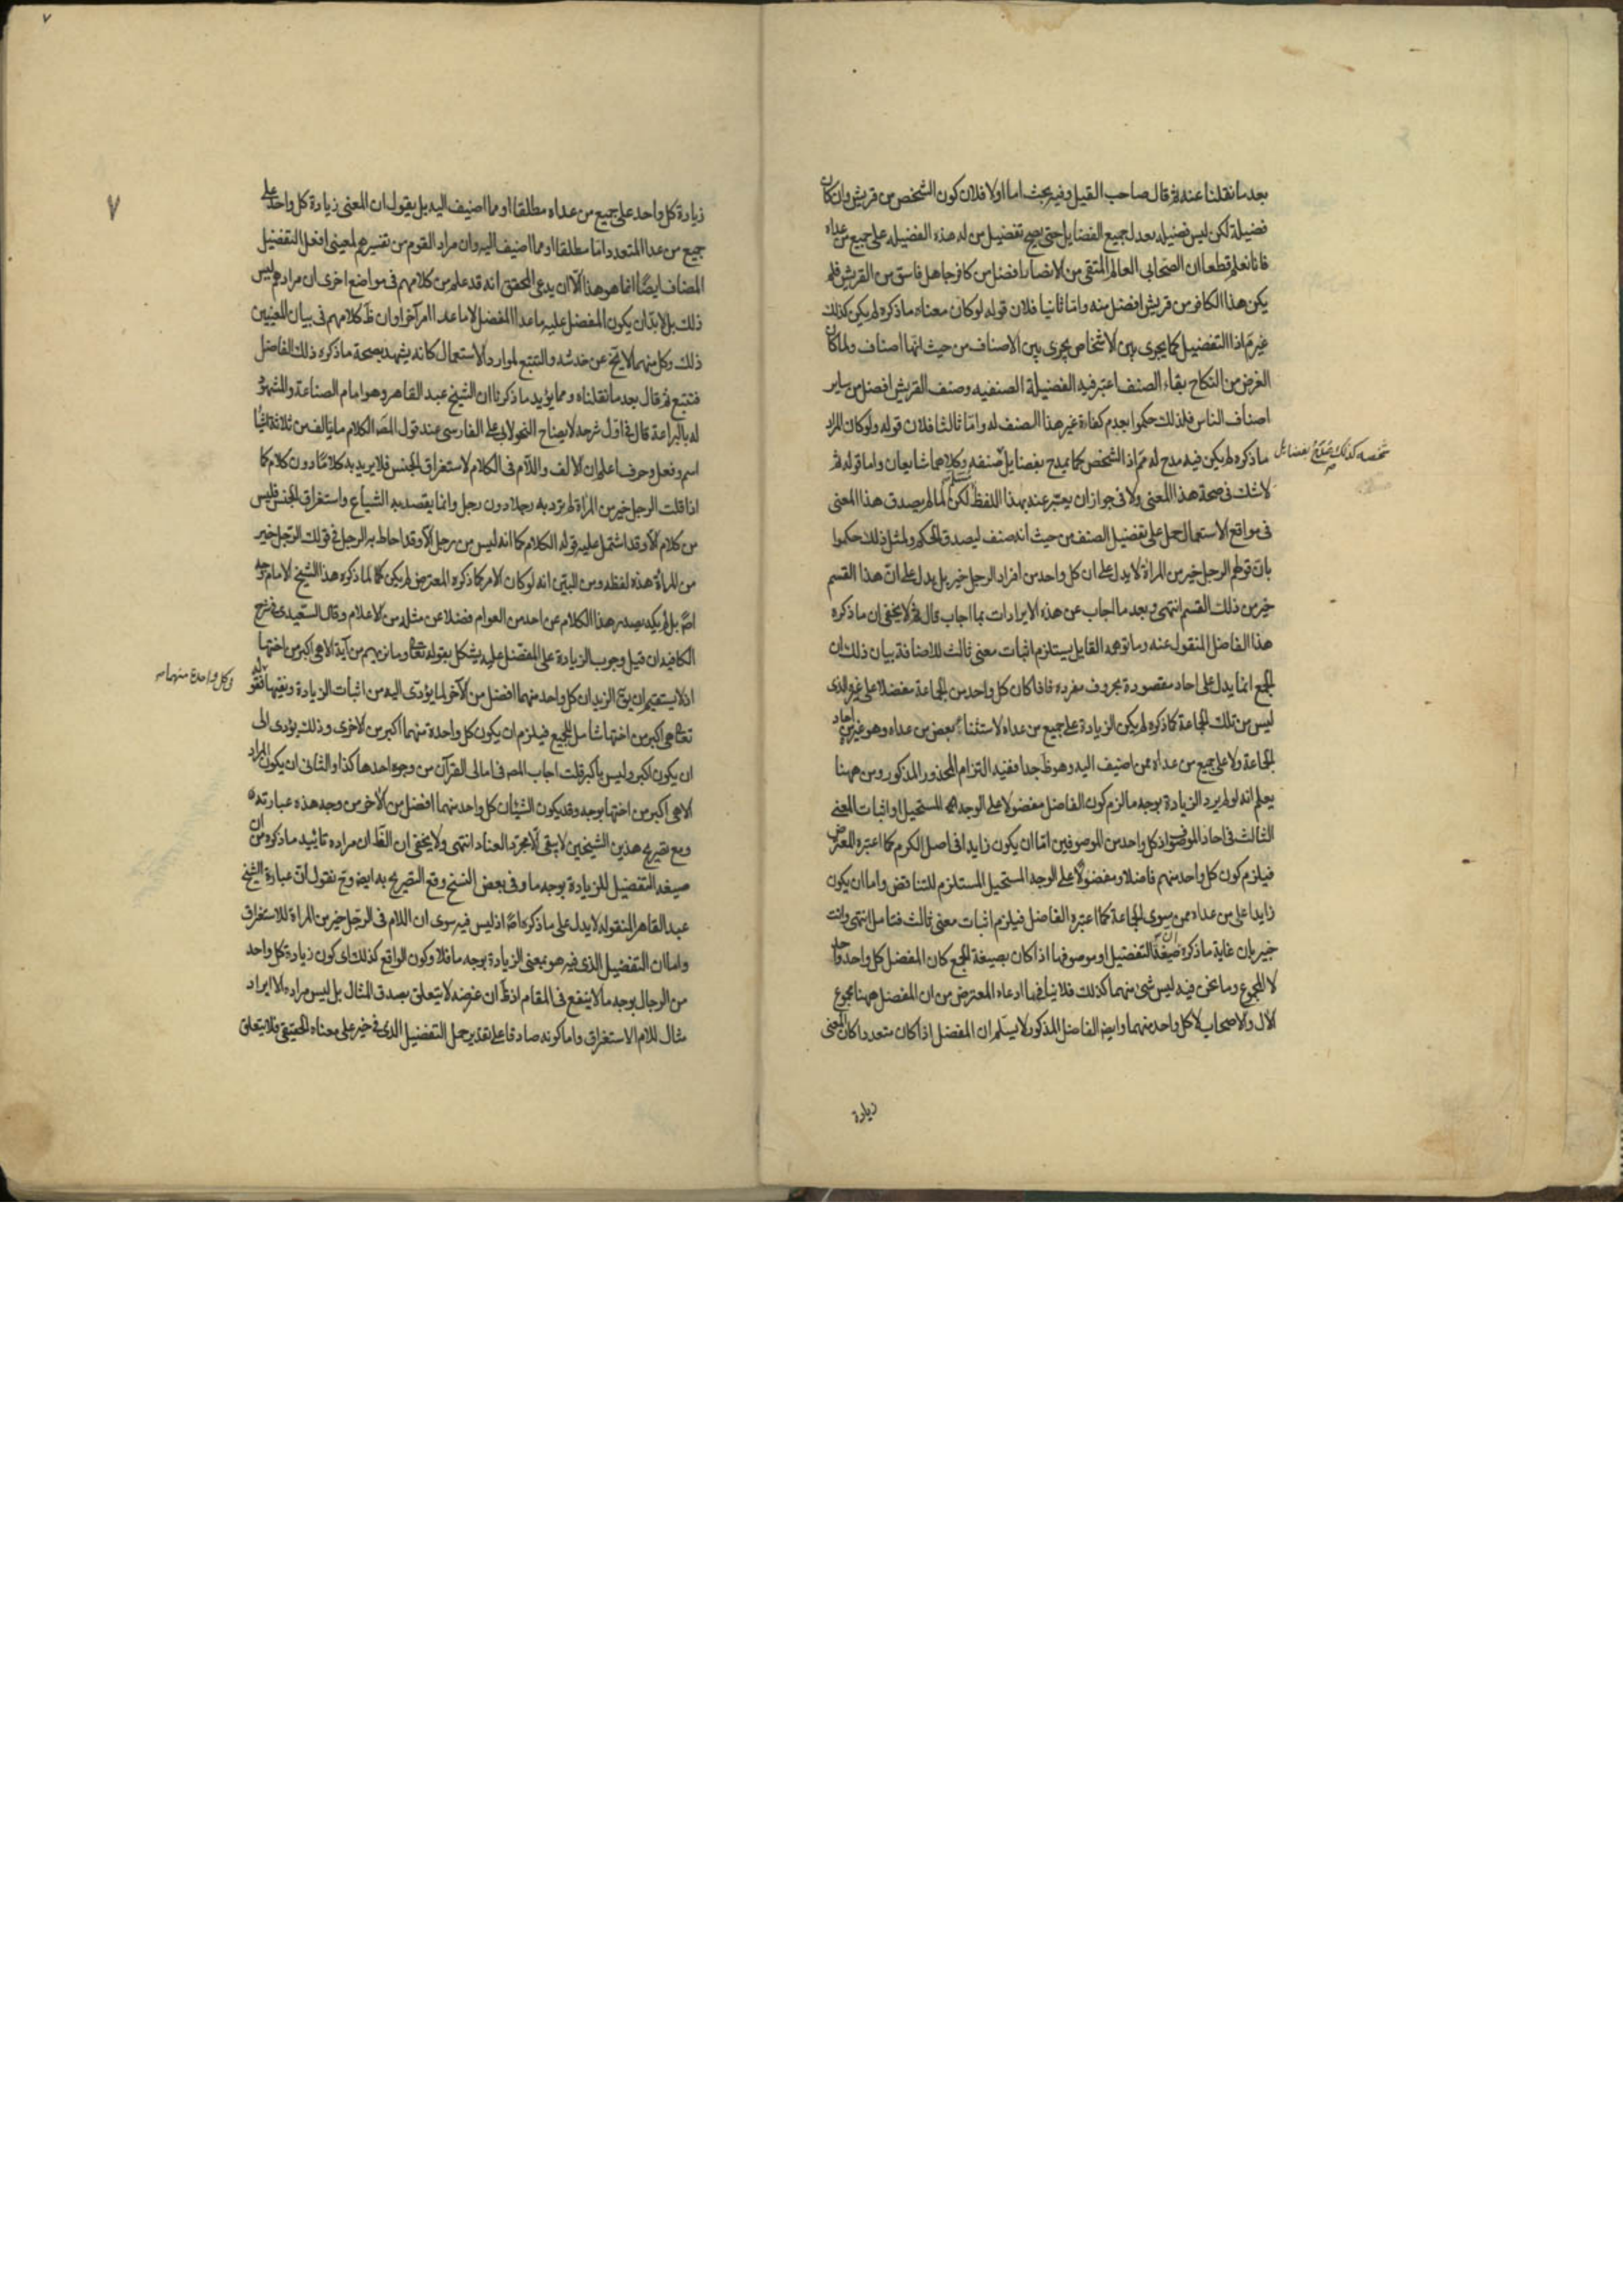 بعد ما نقلنا عنه ثم قال صاحب القيل وفيه بحث اما اولا فلان كون الشخص من قريش وان كان
فضيلة لكن ليس فضيلة بعدل جميع الفضايل حتى يصح تفضيل من له هذه الفضيلة على جميع من عداه
فانا نعلم قطعا ان الصحابى العالم المتقى من الانصار افضل من كافر جاهل فاسق من القريش فلم
يكن هذا الكافر من قريش افضل منه واما ثانيا فلان قوله لو كان معناه ما ذكره لم يكن كذلك
غير تم اذا التفضيل كما يجرى بين الاشخاص يجرى بين الاصناف من حيث انها اصناف ولما كان
الغرض من النكاح بقاء الصنف اعتبر فيه الفضيلة الصنفيه وصنف القريش افضل من ساير
اصناف الناس فلذلك حكموا بعدم كفاءة غير هذا الصنف له واما ثالثا فلان قوله ولو كان المراد
ما ذكره لم يكن فيه مدح له تم اذ الشخص كما يمدح بفضايل صنفه وكلاهما شايعان واما قوله ثم
شخصه كذلك يمدح بفضايل
لا شك فى صحة هذا المعنى ولا فى جواز ان يعبر عنه بهذا اللفظ لكن لما لم يصدق هذا المعنى
فى مواقع الاستعمال حمل على تفضيل الصنف من حيث انه صنف ليصدق الحكم ولمثل ذلك حكموا
بان قولهم الرجل خير من المراة لا يدل على ان كل واحد من افراد الرجل خير بل يدل على ان هذا القسم
خير من ذلك القسم انتهى وبعد ما اجاب عن هذه الايرادات بما اجاب قال ثم لا يخفى ان ما ذكره
هذا الفاضل المنقول عنه وما توهمه القايل يستلزم اثبات معنى ثالث للاضافة بيان ذلك ان
الجمع انما يدل على احاد مقصودة بحروف مفرده فاذا كان كل واحد من الجماعة مفضلا على غير الذى
ليس من تلك الجماعة كما ذكره لم يكن الزيادة على جميع من عداه لاستثناء بعض من عداه وهو غيره من احاد
الجماعة ولا على جميع من عداه ممن اضيف اليه وهو ظ جدا ففيه التزام المحذور المذكور ومن ههنا
يعلم انه لو لم يرد الزيادة بوجه ما لزم كون الفاضل مفضولا على الوجه المستحيل او اثبات المعنى
الثالث فى احاد الموصوف اذ كل واحد من الموصوفين اما ان يكون زايدا فى اصل الكرم كما اعتبره المعترض
فيلزم كون كل واحد منهم فاضلا ومفضولا على الوجه المستحيل المستلزم للتناقض واما ان يكون
زايدا على من عداه ممن سوى الجماعة كما اعتبره الفاضل فيلزم اثبات معنى ثالث فتامل انتهى وانت
خبير بان غاية ما ذكره ان صيغة التفضيل او موصوفها اذا كان بصيغة الجمع كان المفضل كل واحد واحد
لا المجموع وما نحن فيه ليس شئ منهما كذلك فلا ينافى ما ادعاه المعترض من ان المفضل ههنا مجموع
الال والاصحاب لا كل واحد منهما وايضا الفاضل المذكور لا يسلم ان المفضل اذا كان متعددا كان المعنى
زيادة
٧
٧
زيادة كل واحد على جميع من عداه مطلقا او مما اضيف اليه بل يقول ان المعنى زيادة كل واحد على
جميع من عدا المتعدد اما مطلقا او مما اضيف اليه وان مراد القوم من تفسيرهم لمعنى افعل التفضيل
المضاف ايضا انما هو هذا الا ان يدعى المحقق انه قد علم من كلامهم فى مواضع اخرى ان مرادهم ليس
ذلك بل لا بد ان يكون المفضل عليه ما عدا المفضل لا ما عدا امر آخر او ان ظ كلامهم فى بيان المعنيين
ذلك وكل منهما لا يخ عن خدشه والتتبع لموارد الاستعمال كانه يشهد بصحة ما ذكره ذلك الفاضل
فتتبع ثم قال بعد ما نقلناه ومما يؤيد ما ذكرنا ان الشيخ عبد القاهر وهو امام الصناعة والمشهور
له بالبراعة قال فى اول شرحه لايضاح النحو لابى على الفارسى عند قول المص الكلام ما يالف من ثلاثة اشيا
اسم وفعل وحرف اعلم ان الالف واللام فى الكلام لاستغراق الجنس فلا يريد به كلاما دون كلام كما
اذا قلت الرجل خير من المراة لم ترد به رجلا دون رجل وانما يقصد به الشياع واستغراق الجنس فليس
من كلام الا وقد اشتمل عليه قوله الكلام كما انه ليس من رجل الا وقد احاط به الرجل فى قولك الرجل خير
من المراة هذه لفظه ومن البين انه لو كان الامر كما ذكره المعترض لم يكن كما لما ذكره هذا الشيخ الامام وجه
اصلا بل لم يكد يصدر هذا الكلام عن احد من العوام فضلا عن مثله من الاعلام وقال السعيدى فى شرح
الكافيه ان قيل وجوب الزيادة على المفضل عليه يشكل بقوله تعالى وما نريهم من آية الا هى اكبر من اختها
اذ لا يستقيم ان يق الزيدان كل واحد منهما افضل من الآخر لما يؤدى اليه من اثبات الزيادة ونفيها فقوله
وكل واحدة منهما
تعالى هى اكبر من اختها شامل للجميع فيلزم ان يكون كل واحدة منهما اكبر من الاخرى وذلك يؤدى الى
ان يكون اكبر وليس باكبر قلت اجاب المص فى امالى القرآن من وجوه احدها كذا والثانى ان يكون المراد
الا هى اكبر من اختها بوجه وقد يكون الشيئان كل واحد منهما افضل من الآخر من وجه هذه عبارته
ومع تصريح هذين الشيخين لا يبقى الا مجرد العناد انتهى ولا يخفى ان الظ ان مراده تاييد ما ذكره من ان
صيغه التفضيل للزيادة بوجه ما وفى بعض النسخ وقع التصريح به ايضا وح نقول ان عبارة الشيخ
عبد القاهر المنقوله لا يدل على ما ذكره اصلا اذ ليس فيه سوى ان اللام فى الرجل خير من المراة للاستغراق
واما ان التفضيل الذى فيه هو بمعنى الزيادة بوجه ما فلا وكون الواقع كذلك اى كون زيادة كل واحد
من الرجال بوجه ما لا ينفع فى المقام اذ ظ ان غرضه لا يتعلق بصدق المثال بل ليس مراده الا ايراد
مثال للام الاستغراق واما كونه صادقا على تقدير حمل التفضيل الذى فى خير على معناه الحقيقى فلا يتعلق